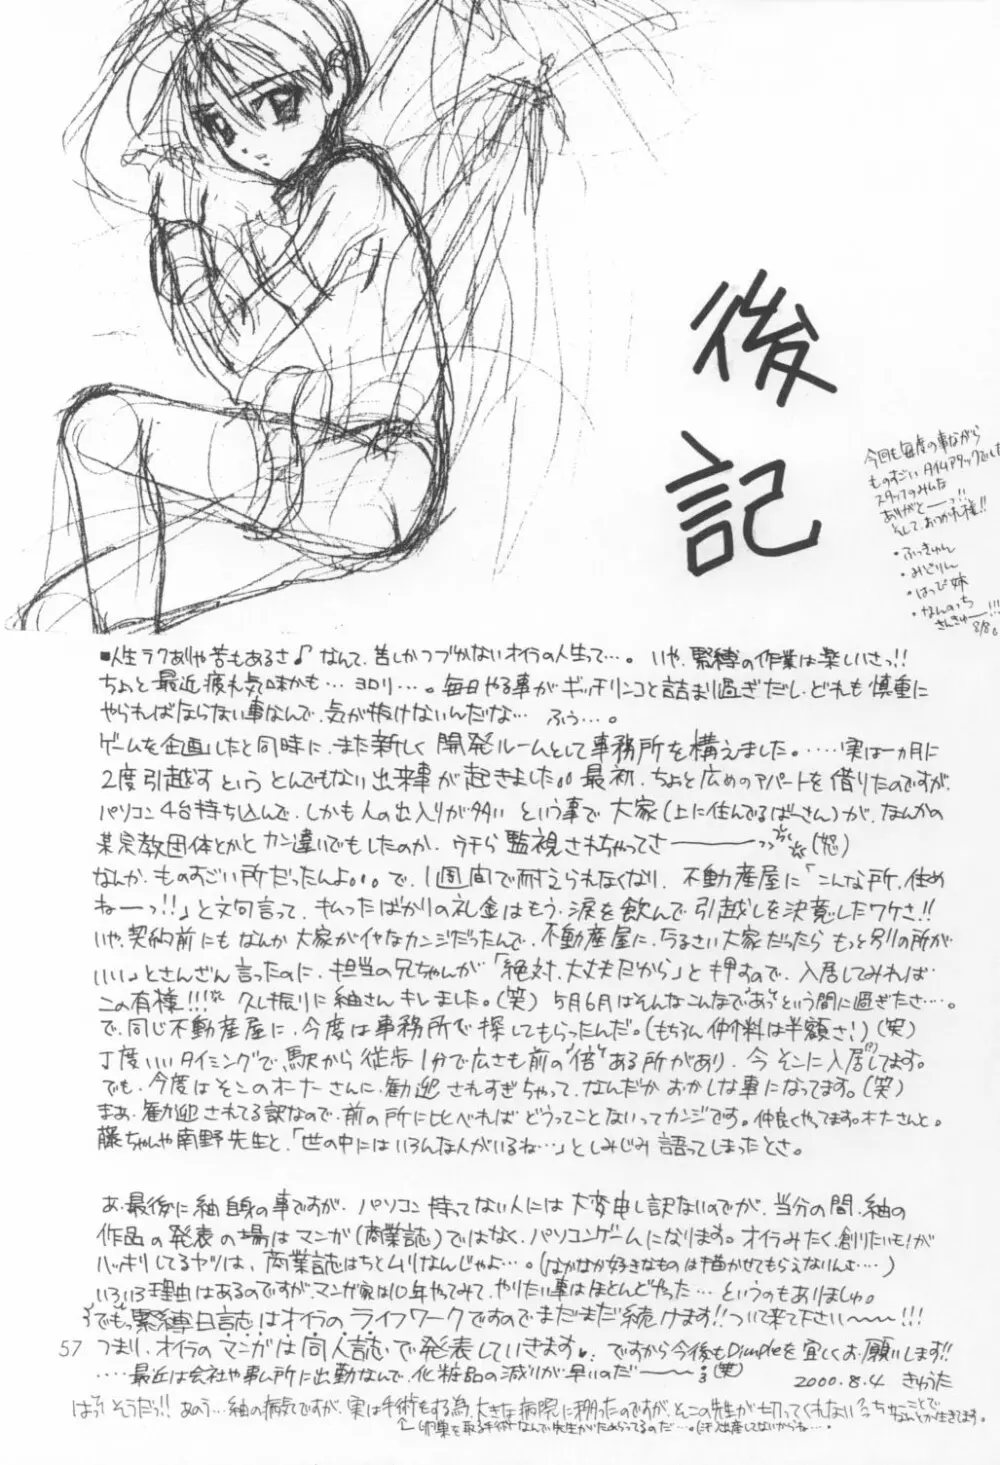 後記
今回も毎度の事ながら
ものすごいタイムアタックでした
スタッフのみんな
ありがとーっ!!
そして、おつかれ様!!
・ふっきゅん
・みどりん
・はっぴ姉
・なんのいち
さんきゅー!!!
8/8。
■人生ラクありゃ苦もあるさ♪なんて、苦しかつづかないオイラの人生って…。いや、緊縛の作業は楽しいさっ!!
ちょっと最近疲れ気味かも…ヨロリ…。毎日やる事がギッチリンコと詰まり過ぎだし、どれも慎重に
やらればならない事なんで、気が抜けないんだな… ふぅ…。
ゲームを企画したと同時に、また新しく開発ルームとして事務所を構えました。‥‥実は一ヵ月に
2度引越すというとんでもない出来事が起きました。。最初、ちょっと広めのアパートを借りたのですが、
パソコン4台持ち込んで、しかも人の出入りが多いという事で大家(上に住んでるばーさん)が、なんかの
某宗教団体とかとカン違いでもしたのか、ウチら監視されちゃってさーーーっっ(怒)
なんか、ものすごい所だったんよ。。。で、1週間で耐えられなくなり、不動産屋に「こんな所、住め
ねーっ!!」と文句言って、払ったばかりの礼金はもう、涙を飲んで引越しを決意したワケさ!!
いや、契約前にもなんか大家がイヤなカンジだったんで、不動産屋に、うるさい大家だったらもっと別の所が
いい。とさんざん言ったのに、担当の兄ちゃんが「絶対、大丈夫だから」と押すので、入居してみれば
この有様!!! 久し振りに紬さんキレました。(笑) 5月6月はそんなこんなであっという間に過ぎたさ…。
で、同じ不動産屋に、今度は事務所で探してもらったんだ。(もちろん仲介料は半額さ!)(笑)
丁度いいタイミングで、駅から徒歩1分で広さも前の"倍"ある所があり、今そこに入居してます。
でも、今度はそこのオーナーさんに、勧迎されすぎちゃって、なんだかおかしな事になってます。(笑)
まあ、勧迎されてる訳なので、前の所に比べればどうってことないってカンジです。仲良くやってます。オーナーさんと。
藤ちゃんや南野先生と、「世の中にはいろんな人がいるね…」としみじみ語ってしまったとさ。
あ、最後に紬自身の事ですが、パソコン持ってない人には大変申し訳ないのですが、当分の間、紬の
作品の発表の場はマンガ(商業誌)ではなく、パソコンゲームになります。オイラみたく、創りたいモノが
ハッキリしてるヤツは、商業誌はちとムリなんじゃよ…。(なかなか好きなものは描かせてもらえないんよ…)
いろいろ理由はあるのですが、マンガ家は10年やってみて、やりたい事はほとんどやった…というのもありましゅ。
でもっ緊縛日誌はオイラのライフワークですのでまだまだ続けます!!ついて来て下さい〜〜!!!
つまり、オイラのマンガは同人誌で発表していきます♥ ですから今後もDimpleを宜しくお願いします!!
‥‥最近は会社や事ム所に出勤なんで、化粧品の減りが早いのだーー;(笑) 2000.8.4 きゅうた
はっ!そうだっ!!あのう…紬の病気ですが、実は手術もする為、大きな病院に移ったのですが、そこの先生が切ってくれないっちゅーことで
なんとか生きてます。
└卵巣を取る手術なんで先生がためらってるのだ…。(まだ出産してないからね…。
57